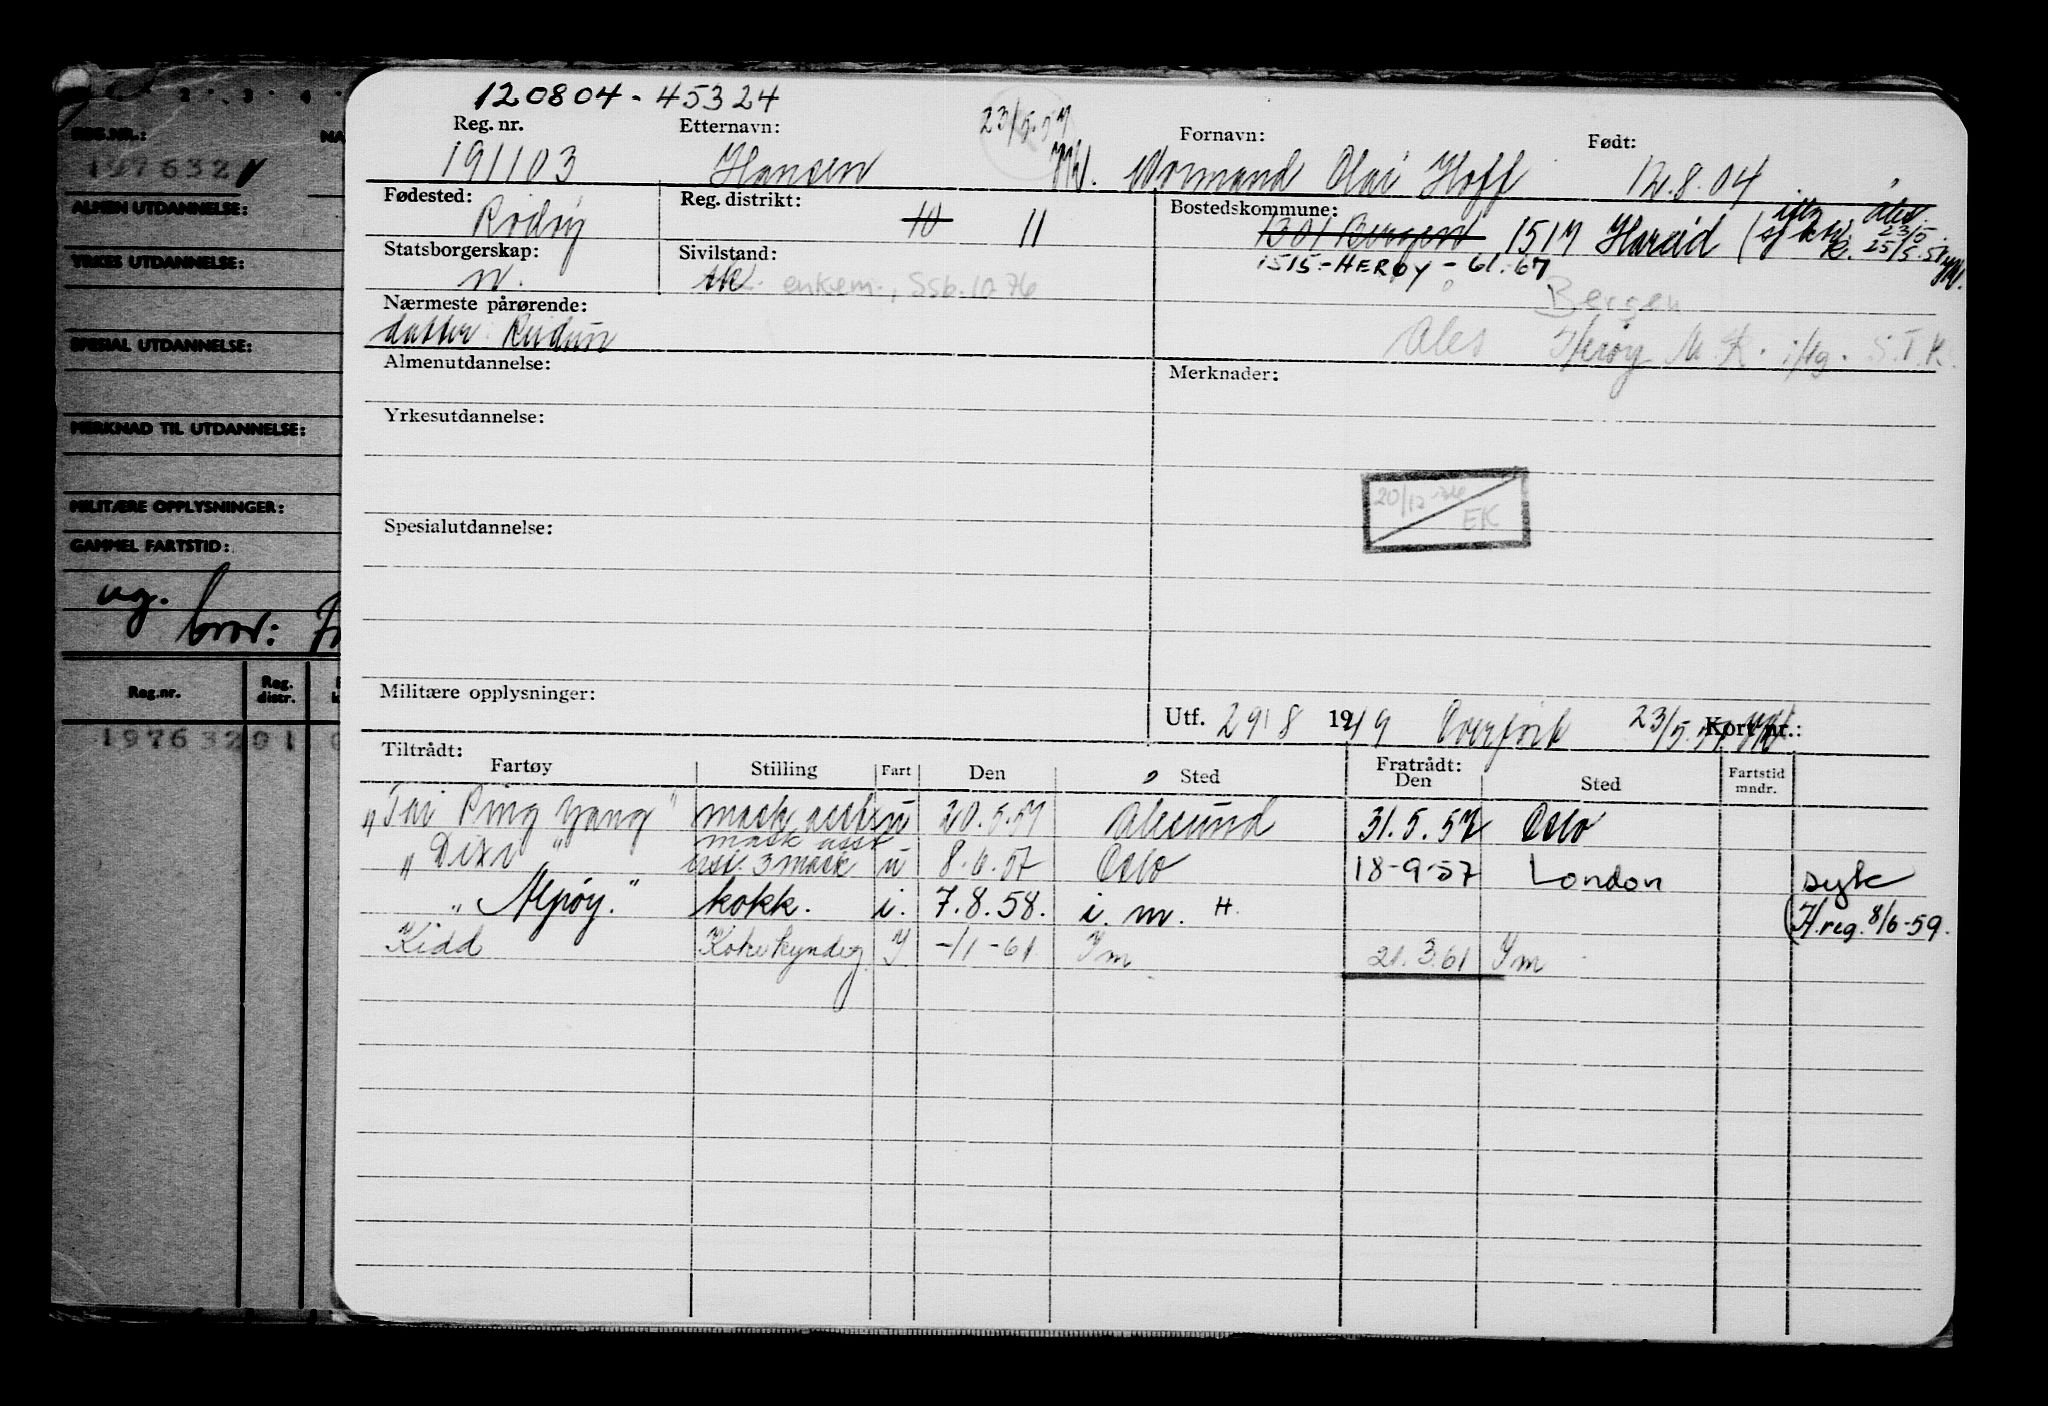 120804 - 45324
Reg. nr. Etternavn: 23/5.57 Fornavn: Født:
191103 Hansen Normand Olai Hoff 12.8.04
Fødested: Rødøy Reg. distrikt: 10 11 Bostedskommune: 1301 Bergen 1517 Hareid
Statsborgerskap: n. Sivilstand: enkem., Ssb. 10 76 1515 - HERØY - 61.-67
Bergen
Nærmeste pårørende:
datter: Reidun Ales Herøy M.K. i flg. S.T.K.
Almenutdannelse: Merknader:
Yrkesutdannelse:
20/12 EK
Spesialutdannelse:
Militære opplysninger:
Utf. 29/8 1949 Overført 23/5.57 Kort nr.:
Tiltrådt: Fratrådt:
Fartøy Stilling Fart Den Sted Den Sted Fartstid mndr.
"Tai Ping Yang" mask asst u 20.5.57 Ålesund 31.5.57 Oslo
mask asst
"Dixi" 3 mask u 8.6.57 Oslo 18-9-57 London syk
kokk. i. 7.8.58. i. m. H. (H/reg. 8/6-59.
Kidd Kokekyndig Y -/1-61 Ym 21.3.61 Ym
REG.NR.:
197632
ALMEN UTDANNELSE:
YRKES UTDANNELSE:
SPESIAL UTDANNELSE:
MERKNAD TIL UTDANNELSE:
MILITÆRE OPPLYSNINGER:
GAMMEL FARTSTID:
ug.
bror:
Reg.nr. Reg. distr.
197632 01